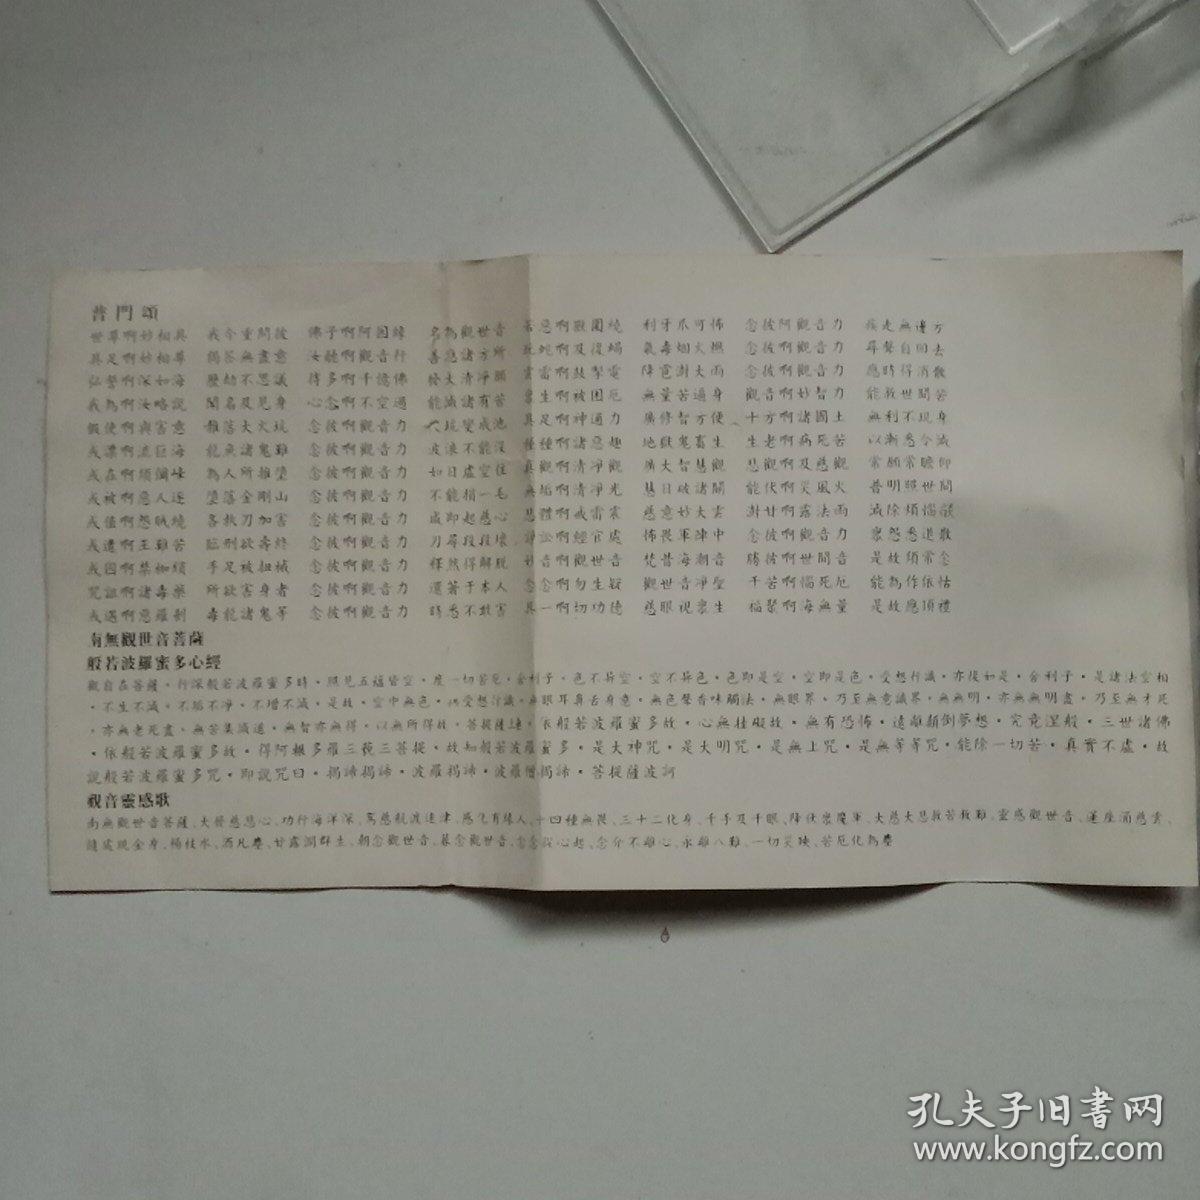 普門頌
世尊啊妙相具 我今重問彼 佛子啊阿因緣 名為觀世音 若惡啊獸圍繞 利牙爪可怖 念彼阿觀音力 疾走無邊方
具足啊妙相尊 偈答無盡意 汝聽啊觀音行 善應諸方所 蚖蛇啊及復蝎 氣毒烟火燃 念彼啊觀音力 尋聲自回去
弘誓啊深如海 歷劫不思議 侍多啊千億佛 發大清淨願 雲雷啊鼓掣電 降雹澍大雨 念彼啊觀音力 應時得消散
我為啊汝略說 聞名及見身 心念啊不空過 能滅諸有苦 眾生啊被困厄 無量苦逼身 觀音啊妙智力 能救世間苦
假使啊興害意 推落大火坑 念彼啊觀音力 火坑變成池 具足啊神通力 廣修智方便 十方啊諸國土 無利不現身
或漂啊流巨海 龍魚諸鬼難 念彼啊觀音力 波浪不能沒 種種啊諸惡趣 地獄鬼畜生 生老啊病死苦 以漸悉令滅
或在啊須彌峰 為人所推墮 念彼啊觀音力 如日虛空住 真觀啊清淨觀 廣大智慧觀 悲觀啊及慈觀 常願常瞻仰
或被啊惡人逐 墮落金剛山 念彼啊觀音力 不能損一毛 無垢啊清淨光 慧日破諸闇 能伏啊災風火 普明照世間
或值啊怨賊繞 各執刀加害 念彼啊觀音力 咸即起慈心 悲體啊戒雷震 慈意妙大雲 澍甘啊露法雨 滅除煩惱燄
或遭啊王難苦 臨刑欲壽終 念彼啊觀音力 刀尋段段壞 諍訟啊經官處 怖畏軍陣中 念彼啊觀音力 眾怨悉退散
或囚啊禁枷鎖 手足被杻械 念彼啊觀音力 釋然得解脫 妙音啊觀世音 梵音海潮音 勝彼啊世間音 是故須常念
咒詛啊諸毒藥 所欲害身者 念彼啊觀音力 還著于本人 念念啊勿生疑 觀世音淨聖 于苦啊惱死厄 能為作依怙
或遇啊惡羅剎 毒龍諸鬼等 念彼啊觀音力 時悉不敢害 具一啊切功德 慈眼視眾生 福聚啊海無量 是故應頂禮
南無觀世音菩薩
般若波羅蜜多心經
觀自在菩薩·行深般若波羅蜜多時·照見五蘊皆空·度一切苦厄·舍利子·色不異空·空不異色·色即是空·空即是色·受想行識·亦復如是·舍利子·是諸法空相
·不生不滅·不垢不淨·不增不減·是故·空中無色·無受想行識·無眼耳鼻舌身意·無色聲香味觸法·無眼界·乃至無意識界·無無明·亦無無明盡·乃至無老死
·亦無老死盡·無苦集滅道·無智亦無得·以無所得故·菩提薩埵·依般若波羅蜜多故·心無挂礙故·無有恐怖·遠離顛倒夢想·究竟涅般·三世諸佛
·依般若波羅蜜多故·得阿耨多羅三藐三菩提·故知般若波羅蜜多·是大神咒·是大明咒·是無上咒·是無等等咒·能除一切苦·真實不虛·故
說般若波羅蜜多咒·即說咒曰·揭諦揭諦·波羅揭諦·波羅僧揭諦·菩提薩波訶
觀音靈感歌
南無觀世音菩薩、大發慈悲心、功行海洋深、駕慈航渡迷津、感化有緣人、十四種無畏、三十二化身、千手及千眼、降伏眾魔軍、大慈大悲救苦救難、靈感觀世音、蓮座涌慈雲、
隨處現金身、楊枝水、洒凡塵、甘露潤群生、朝念觀世音、暮念觀世音、念念從心起、念介不離心、永離八難、一切災殃、苦厄化為塵
孔夫子旧書网
www.kongfz.com